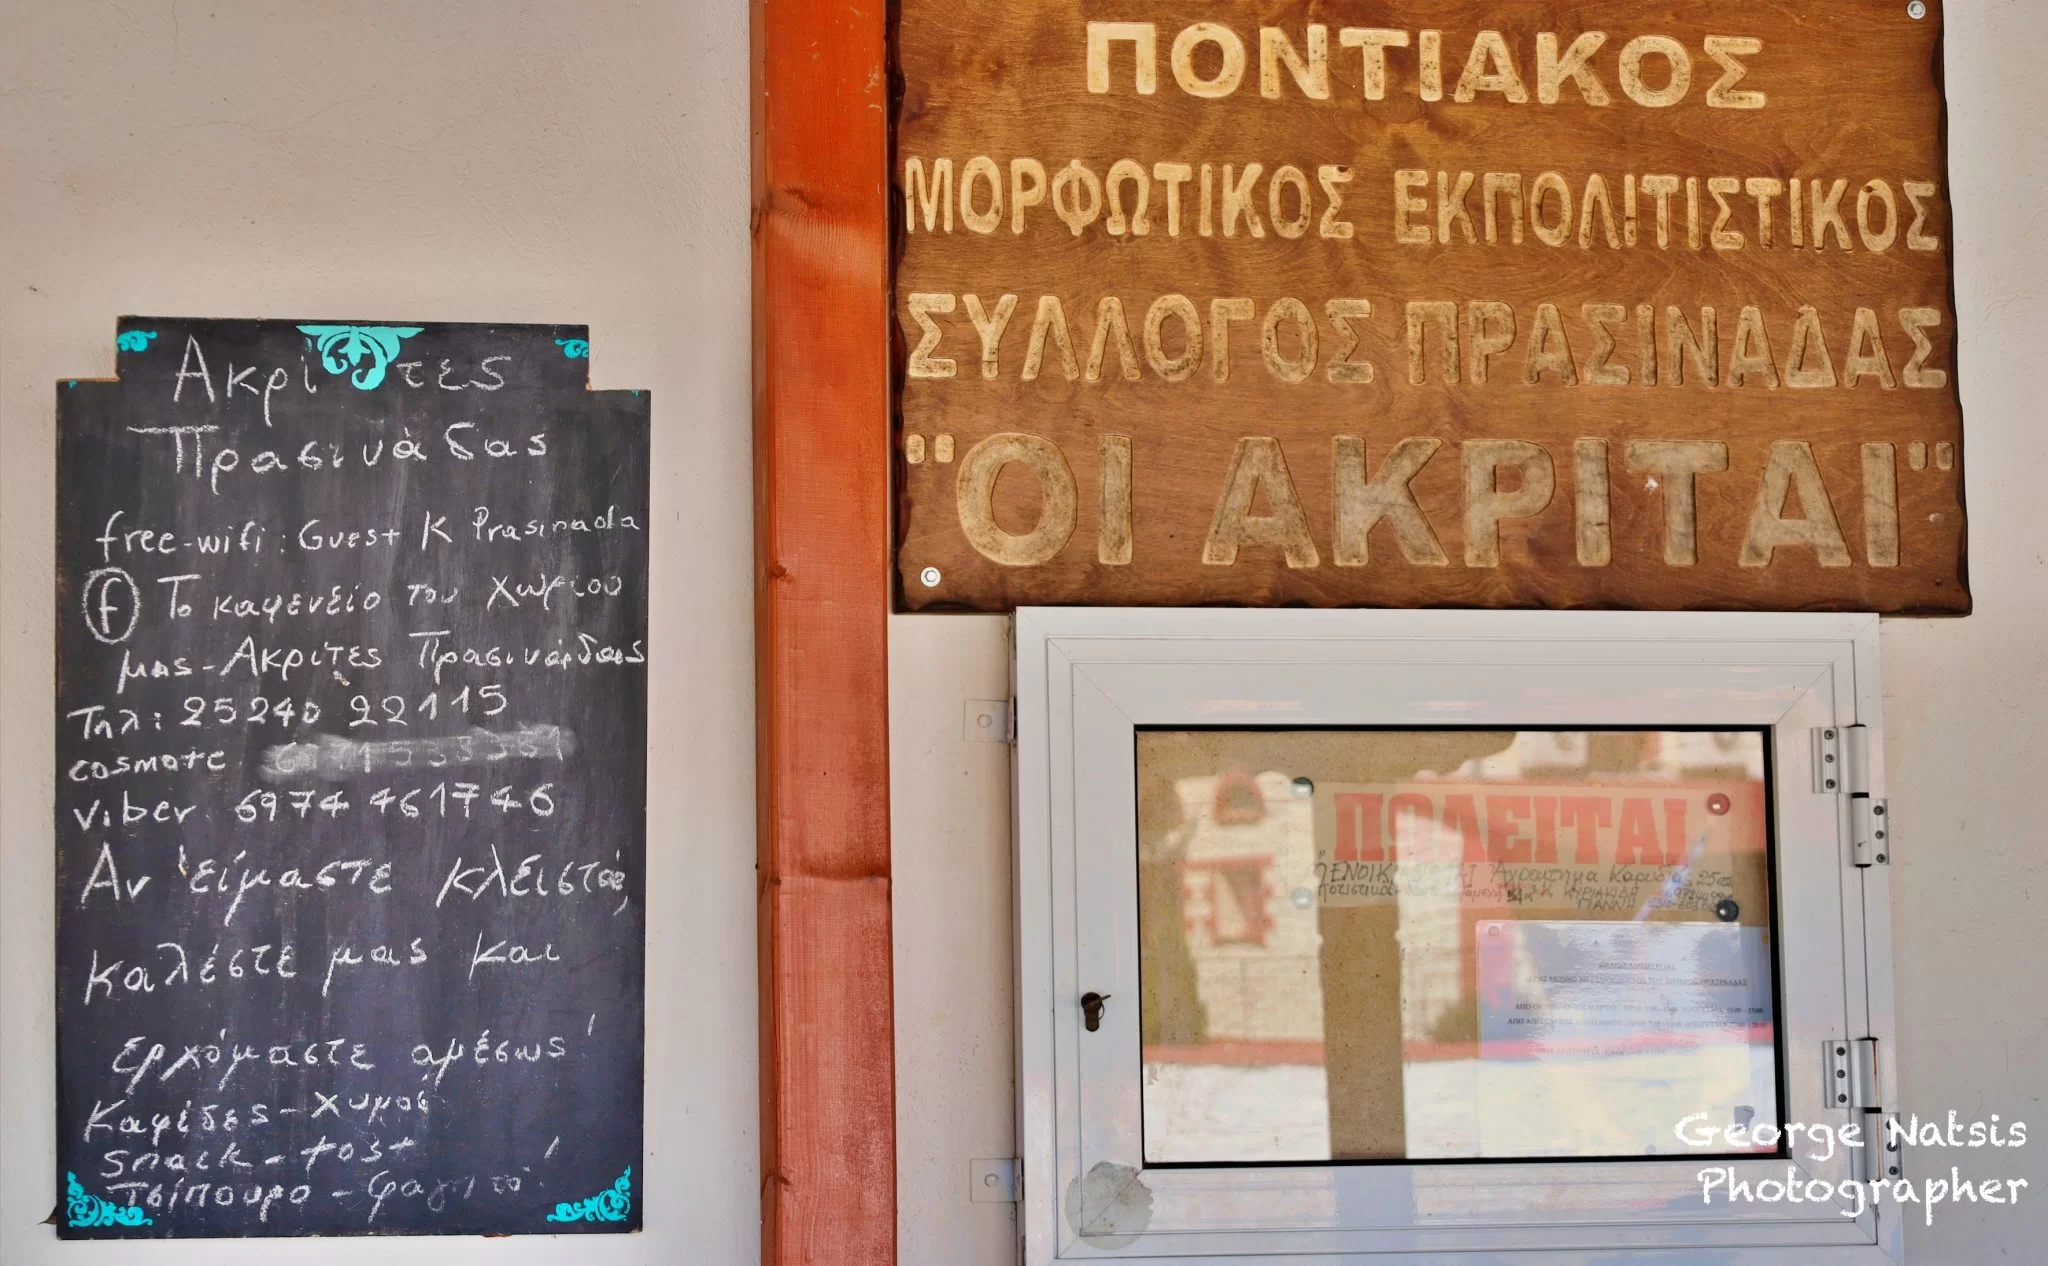 Ακρίτες
Πρασινάδας
free-wifi: Guest K Prasinada
f Το καφενείο του χωριού
μας - Ακρίτες Πρασινάδας
Τηλ: 25240 22115
cosmote
viber 6974 461746
Αν είμαστε κλειστά,
καλέστε μας και
ερχόμαστε αμέσως!
Καφέδες - χυμοί
snack - tost
Τσίπουρο - Φαγητό!
ΠΟΝΤΙΑΚΟΣ
ΜΟΡΦΩΤΙΚΟΣ ΕΚΠΟΛΙΤΙΣΤΙΚΟΣ
ΣΥΛΛΟΓΟΣ ΠΡΑΣΙΝΑΔΑΣ
"ΟΙ ΑΚΡΙΤΑΙ"
ΠΩΛΕΙΤΑΙ
Αγρόκτημα Καρυδιάς
ΚΥΡΙΑΚΙΔΗ
ΓΙΑΝΝΑ
George Natsis
Photographer